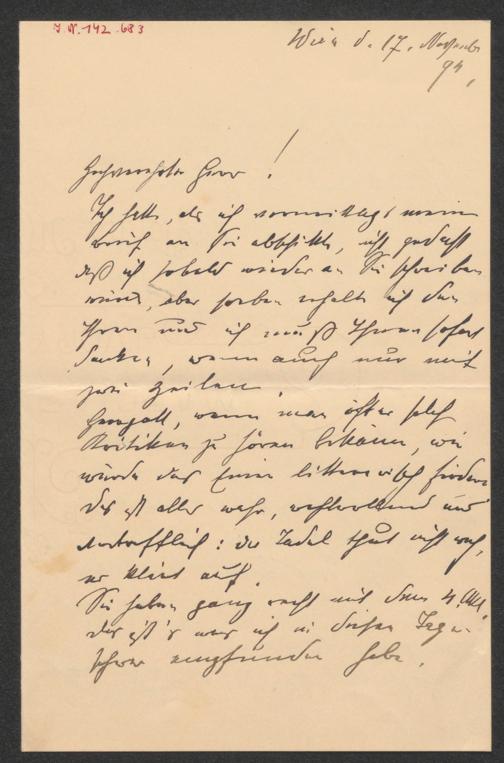 J.N. 142.683
Wien d. 17. November
94.
Hochverehrter Herr!
Ich hatte, als ich vormittags meinen
Brief an Sie abschickte, nicht gedacht
daß ich sobald wieder an Sie schreiben
würde, aber soeben erhalte ich den
Ihren und ich muß Ihnen sofort
danken, wenn auch nur mit
zwei Zeilen.
Herrgott, wenn man öfter solche
Kritiken zu hören bekäme, wie
würde das Einen litterarisch fördern
das ist alles wahr, wohlwollend und
vortrefflich: der Tadel thut nicht weh,
er klärt auf.
Sie haben ganz recht mit dem 4. Akt,
das ist's was ich in diesen Tagen
schwer empfunden habe.